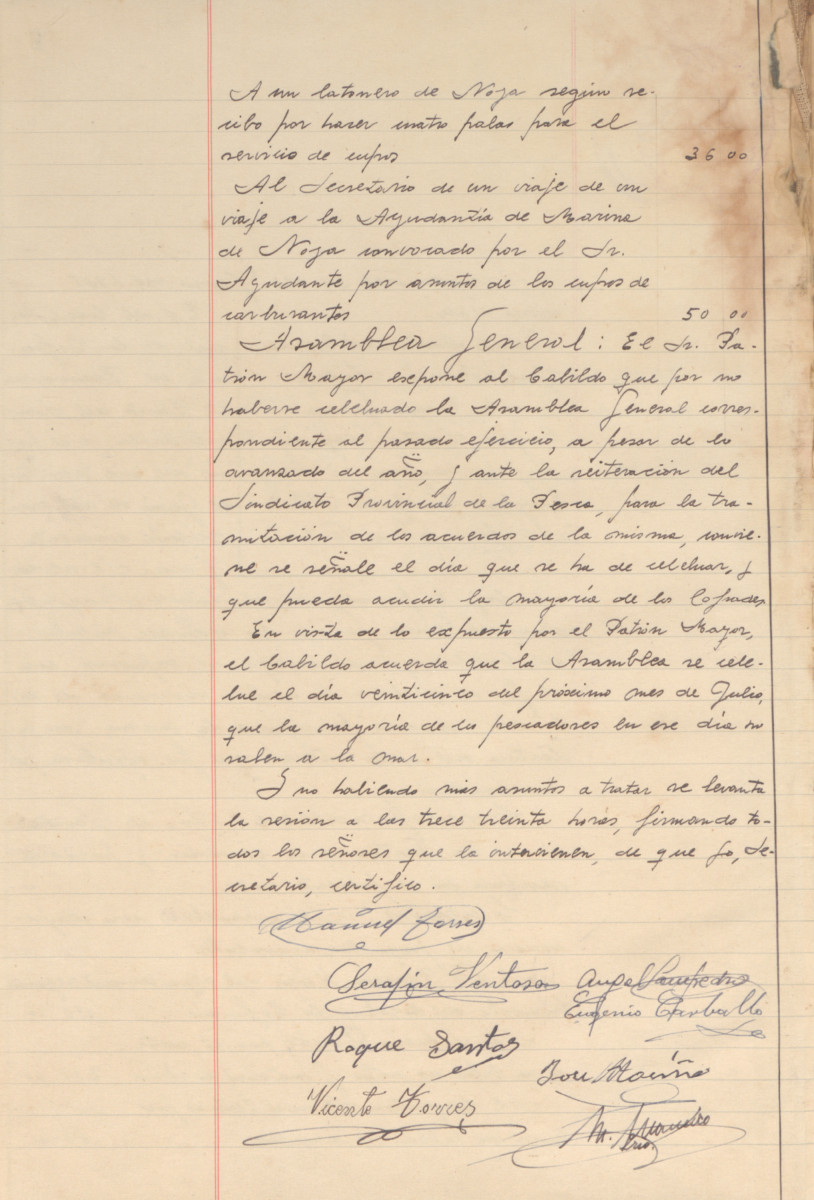 A un latonero de Noya según re-
cibo por hacer cuatro palas para el
servicio de cupos 36 00
Al Secretario de un viaje de un
viaje a la Ayudantía de Marina
de Noya convocado por el Sr.
Ayudante por asuntos de los cupos de
carburantes 50 00
Asamblea General: El Sr. Pa-
trón Mayor expone al Cabildo que por no
haberse celebrado la Asamblea General corres-
pondiente al pasado ejercicio, a pesar de lo
avanzado del año, y ante la reiteración del
Sindicato Provincial de la Pesca, para la tra-
mitación de los acuerdos de la misma, convie-
ne se señale el día que se ha de celebrar, y
que pueda acudir la mayoría de los Cofrades
En vista de lo expuesto por el Patrón Mayor,
el Cabildo acuerda que la Asamblea se cele-
bre el día veinticinco del próximo mes de Julio,
que la mayoría de los pescadores en ese día no
salen a la mar.
Y no habiendo más asuntos a tratar se levanta
la sesión a las trece treinta horas, firmando to-
dos los señores que la intervienen, de que yo, Se-
cretario, certifico.
Manuel Torres
Serafín Ventoso Angel Sampedro
Eugenio Carballo
Roque Santos
José Mariño
Vicente Torres
M.